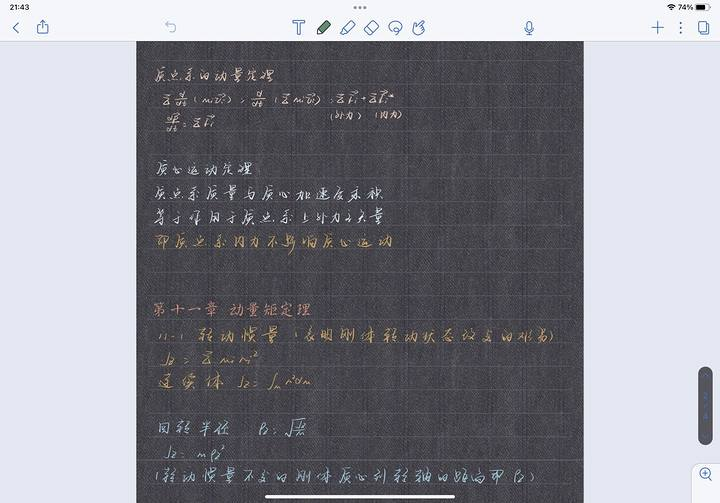 21:43
74%
T
质点系的动量定理
Σ d/dt (mᵢv⃗ᵢ) = d/dt (Σ mᵢv⃗ᵢ) = ΣF⃗ᵢ + ΣF⃗ᵢ*
(外力) (内力)
dp⃗/dt = ΣF⃗ᵢ
质心运动定理
质点系质量与质心加速度乘积
等于作用于质点系上外力主矢量
即质点系内力不影响质心运动
第十一章 动量矩定理
11-1 转动惯量 (表明刚体转动状态改变的难易)
Jz = Σ mᵢrᵢ²
连续体 Jz = ∫ₘ r²dm
回转半径
Jz = mρz²
(转动惯量不变的刚体质心到转轴的距离即 ρz)